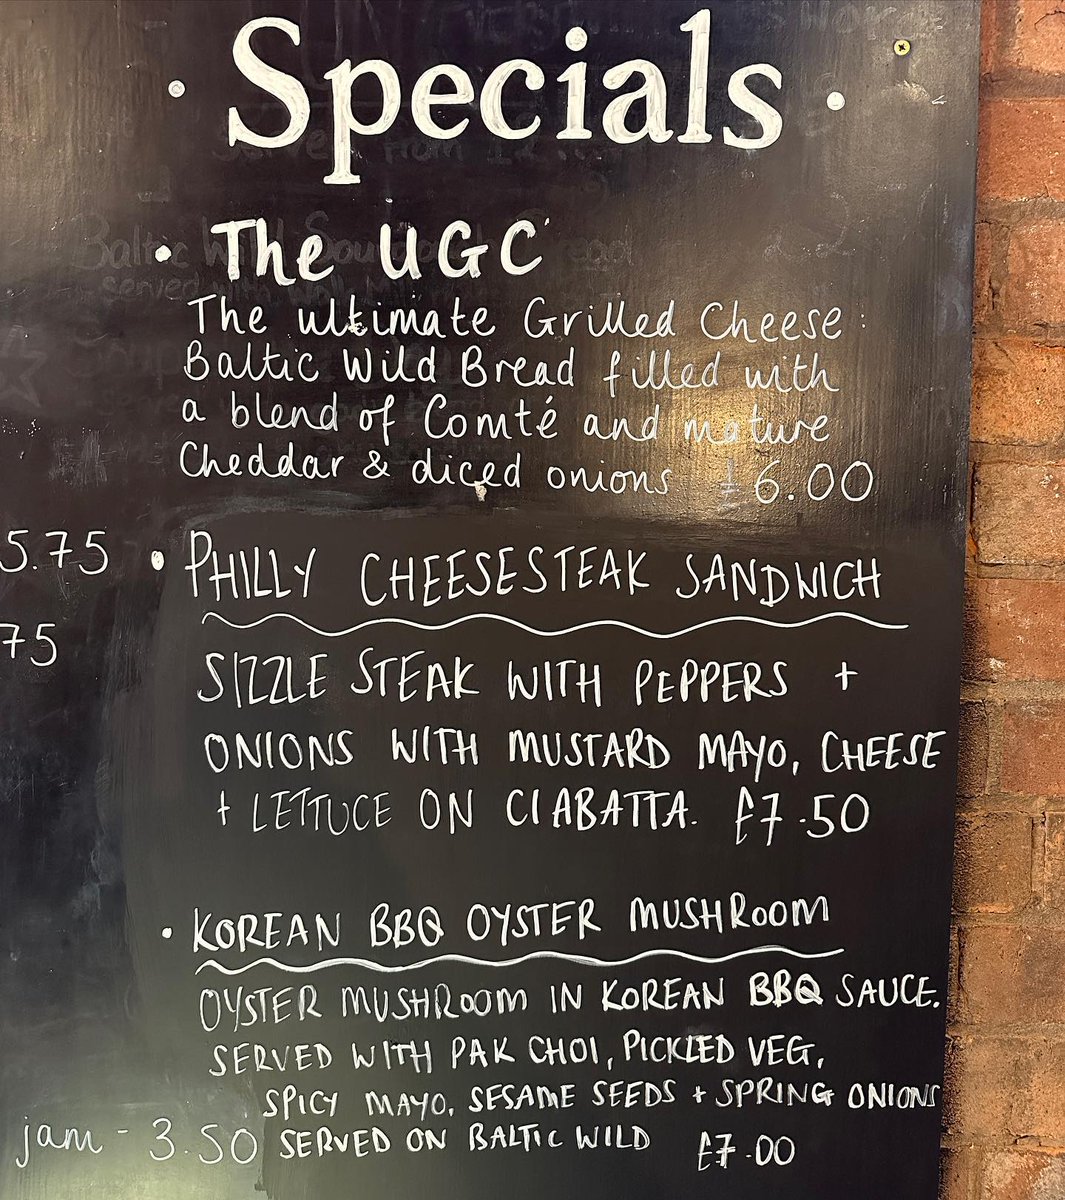 Specials
The UGC
The ultimate Grilled Cheese:
Baltic Wild Bread filled with
a blend of Comté and mature
Cheddar & diced onions £6.00
5.75
75
PHILLY CHEESESTEAK SANDWICH
SIZZLE STEAK WITH PEPPERS +
ONIONS WITH MUSTARD MAYO, CHEESE
+ LETTUCE ON CIABATTA. £7.50
KOREAN BBQ OYSTER MUSHROOM
OYSTER MUSHROOM IN KOREAN BBQ SAUCE.
SERVED WITH PAK CHOI, PICKLED VEG,
SPICY MAYO, SESAME SEEDS + SPRING ONIONS
SERVED ON BALTIC WILD £7.00
jam - 3.50